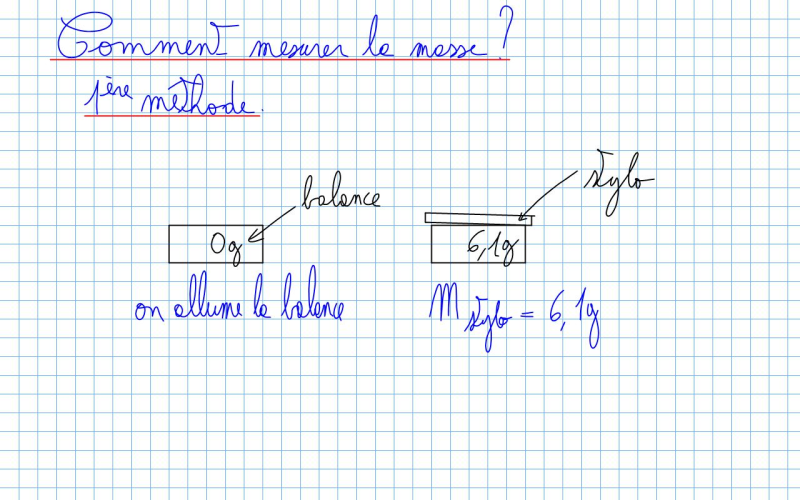 Comment mesurer la masse ?
1ère méthode.
balance
stylo
0g
6,1g
on allume la balance
m stylo = 6,1g